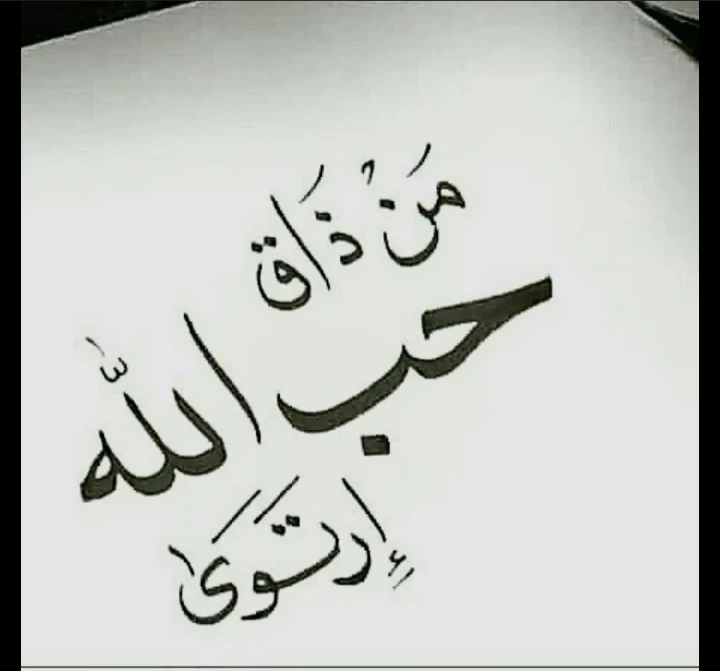 مَنْ ذَاق
حب اللّٰه
إِرتَوَىٰ